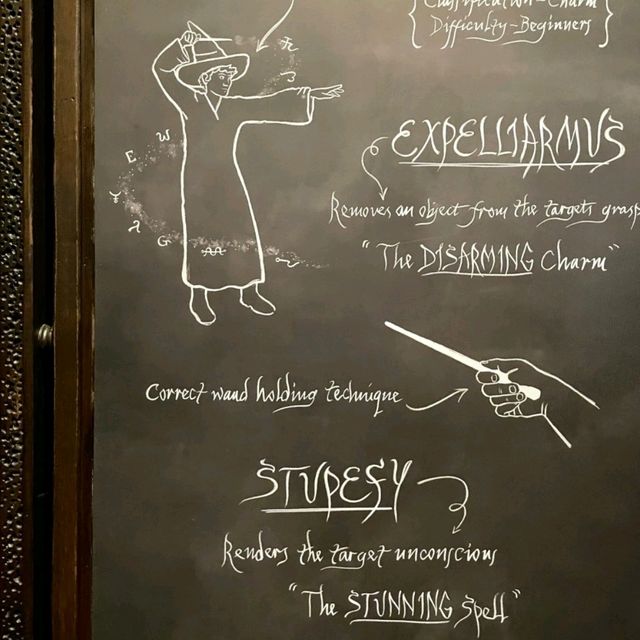 Classification - Charm
Difficulty - Beginners
EXPELLIARMUS
Removes an object from the targets grasp
"The DISARMING Charm"
W
E
G
Correct wand holding technique
STUPEFY
Renders the target unconscious
"The STUNNING Spell"